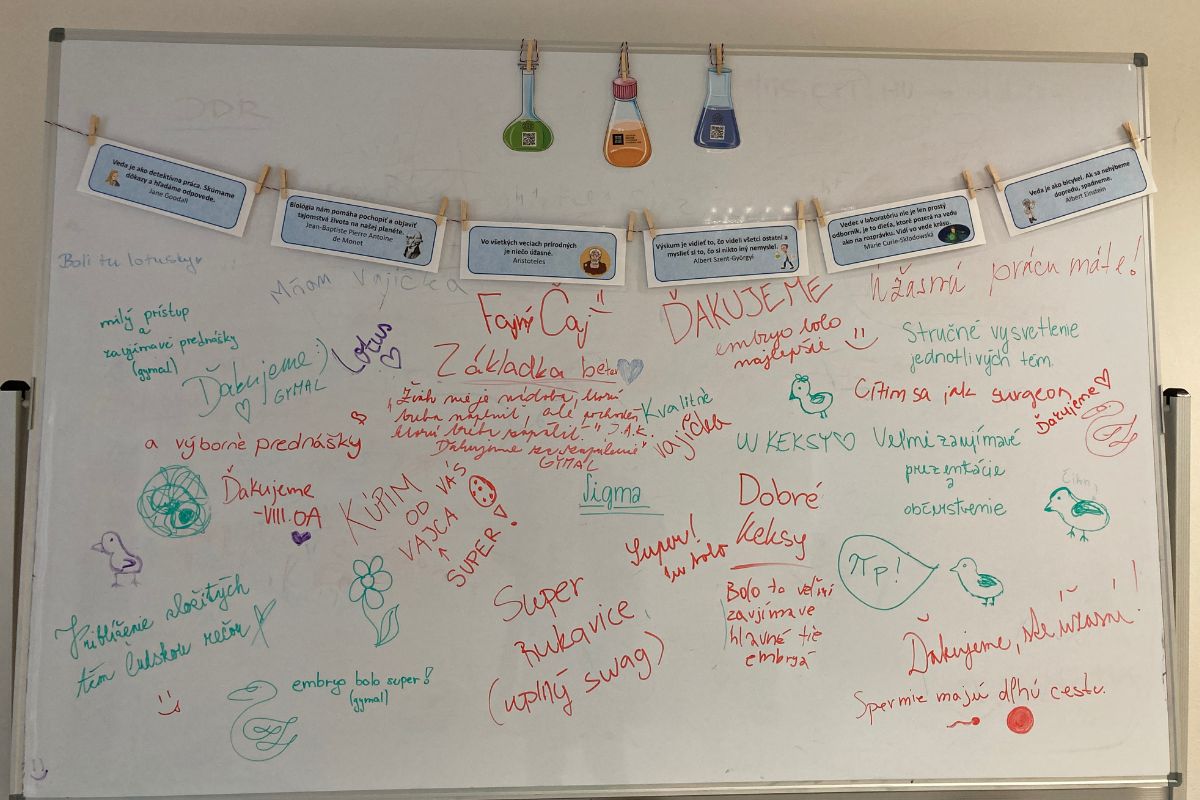 DDR
Veda je ako detektívna práca. Skúmame
dôkazy a hľadáme odpovede.
Jane Goodall
Biológia nám pomáha pochopiť a objaviť
tajomstvá života na našej planéte.
Jean-Baptiste Pierre Antoine
de Monet
Vo všetkých veciach prírodných
je niečo úžasné.
Aristoteles
Výskum je vidieť to, čo videli všetci ostatní a
myslieť si to, čo si nikto iný nemyslel.
Albert Szent-Györgyi
Vedec v laboratóriu nie je len prostý
odborník, je to dieťa, ktoré pozerá na vedu
ako na rozprávku. Vidí vo vede krásu.
Marie Curie-Skłodowská
Veda je ako bicykel. Ak sa nehýbeme
dopredu, spadneme.
Albert Einstein
Boli tu lotusky
Mňam Vajíčka
milý prístup
a
zaujímavé prednášky
(gymal)
Ďakujeme :)
GYMAL
Lotus
a výborné prednášky
Ďakujeme
-VIII.OA
Fajný Čaj
Základka
nie je nádoba, ktorú
treba naplniť, ale pochodeň,
ktorú treba zapáliť." J.A.K.
Ďakujeme za zapálenie
GYMAL
KÚPIM
OD VÁS
VAJCA
SUPER!
Kvalitné
Vajíčka
Sigma
ĎAKUJEME
embryo bolo
najlepšie
Úžasnú prácu máte!
Stručné vysvetlenie
jednotlivých tém.
Cítim sa jak surgeon
Ďakujeme
W KEKSY
Veľmi zaujímavé
prezentácie
a
občerstvenie
Čihn
Dobré
Keksy
Super!
tu bolo
Pip!
Priblíženie zložitých
tém ľudskou rečou
embryo bolo super!
(gymal)
Super
Rukavice
(uplný swag)
Bolo to veľmi
zaujímave
hlavné tie
embryá
Ďakujeme, ste úžasní!
Spermie majú dlhú cestu.